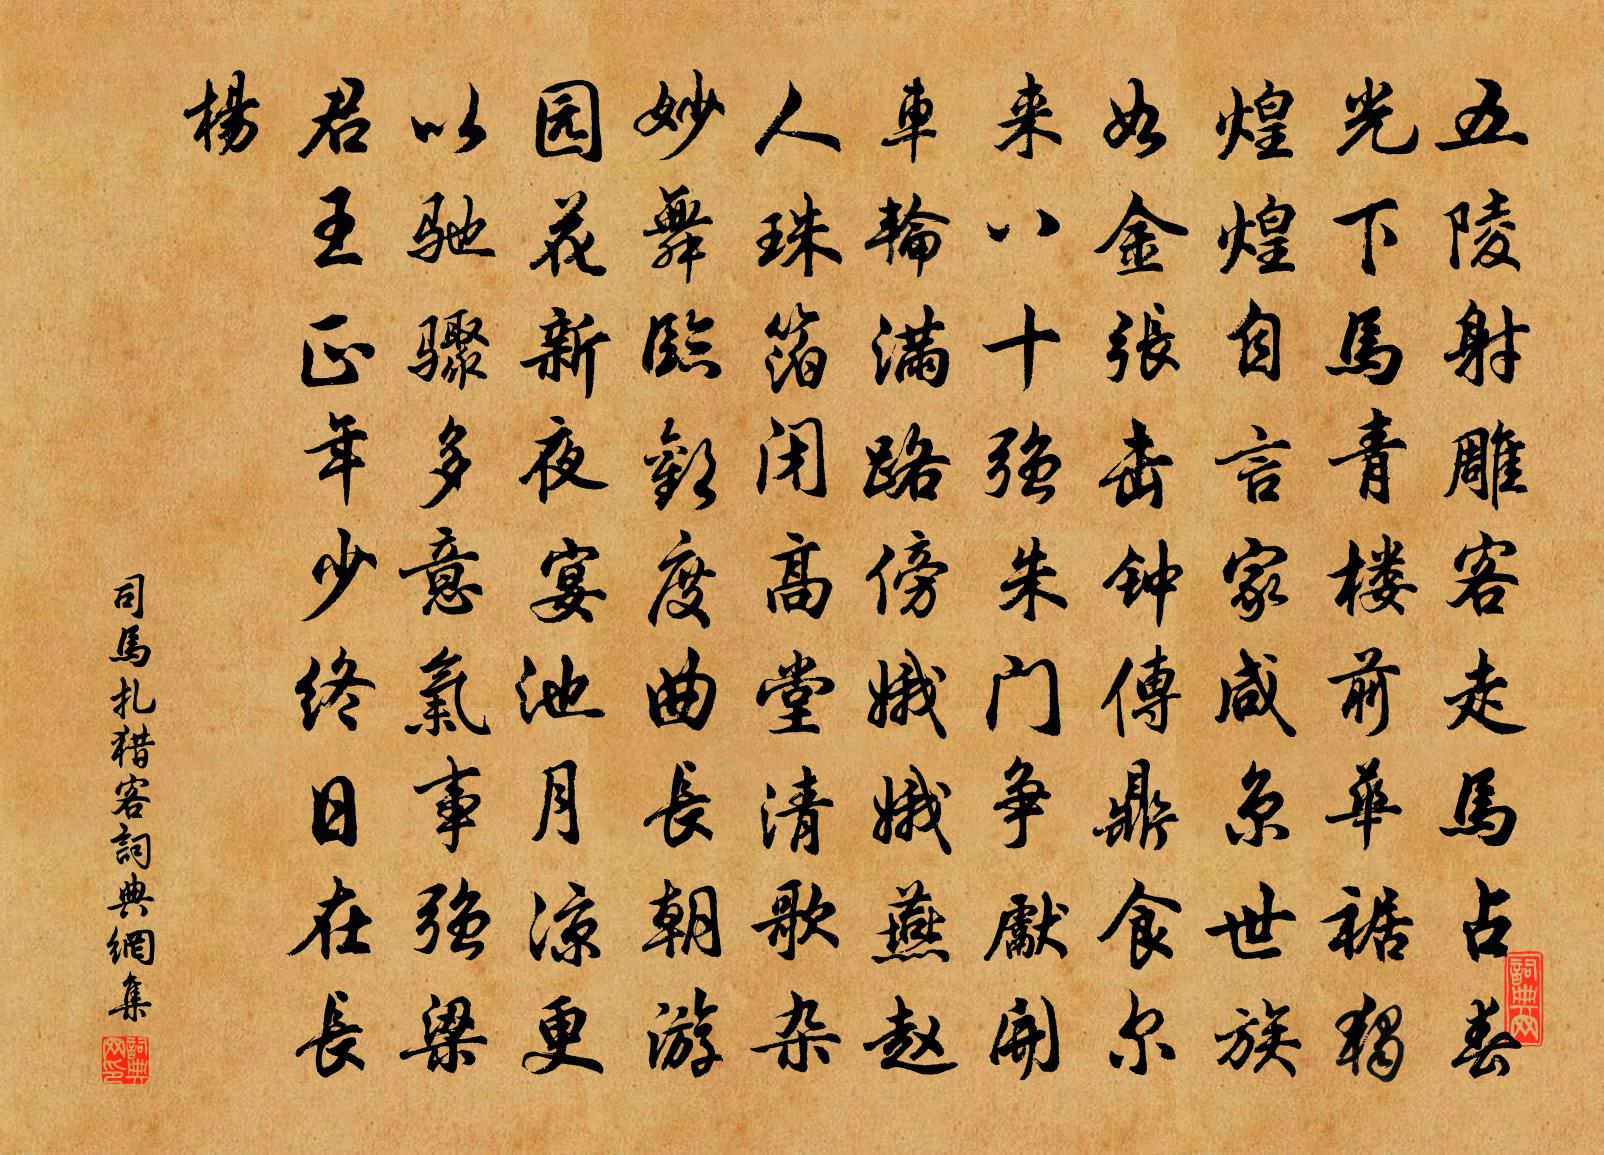 五陵射雕客走馬占春
光下馬青楼前華裾獨
煌煌自言家咸京世族
如金張击钟傳鼎食尔
来八十强朱门争獻開
車輪满路傍娥娥燕赵
人珠箔闭高堂清歌杂
妙舞臨歡度曲長朝游
园花新夜宴池月凉更
以驰骤多意氣事强梁
君王正年少终日在長
楊
司馬扎猎客詞典網集
詞典网
詞典网印